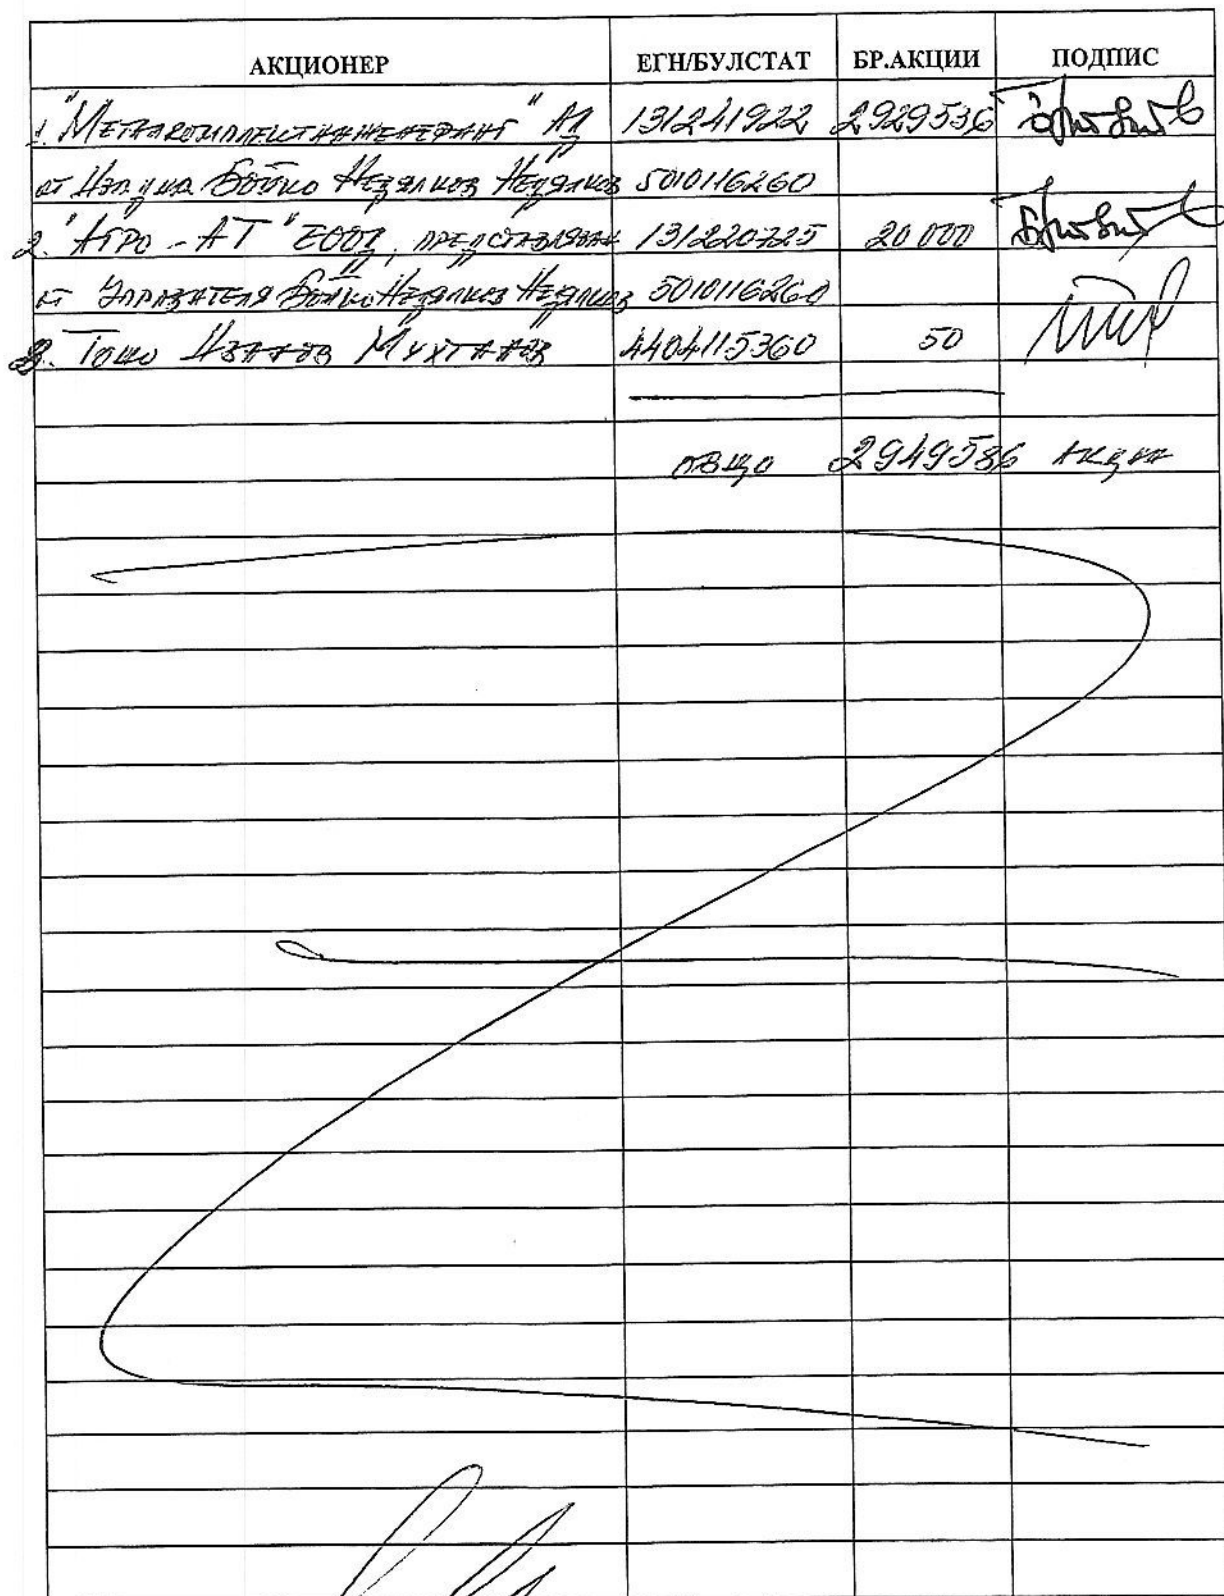 АКЦИОНЕР ЕГН/БУЛСТАТ БР.АКЦИИ ПОДПИС
1. "Металкомплектинженеринг" АД 131241922 2929536
от Изп. Бойко Недялков Недялков 5010116260
2. "Агро-АТ" ЕООД, представлявано 131220725 20 000
от Управителя Бойко Недялков Недялков 5010116260
3. Тошо Иванов Мухтанов 4404115360 50
общо 2949586 акции